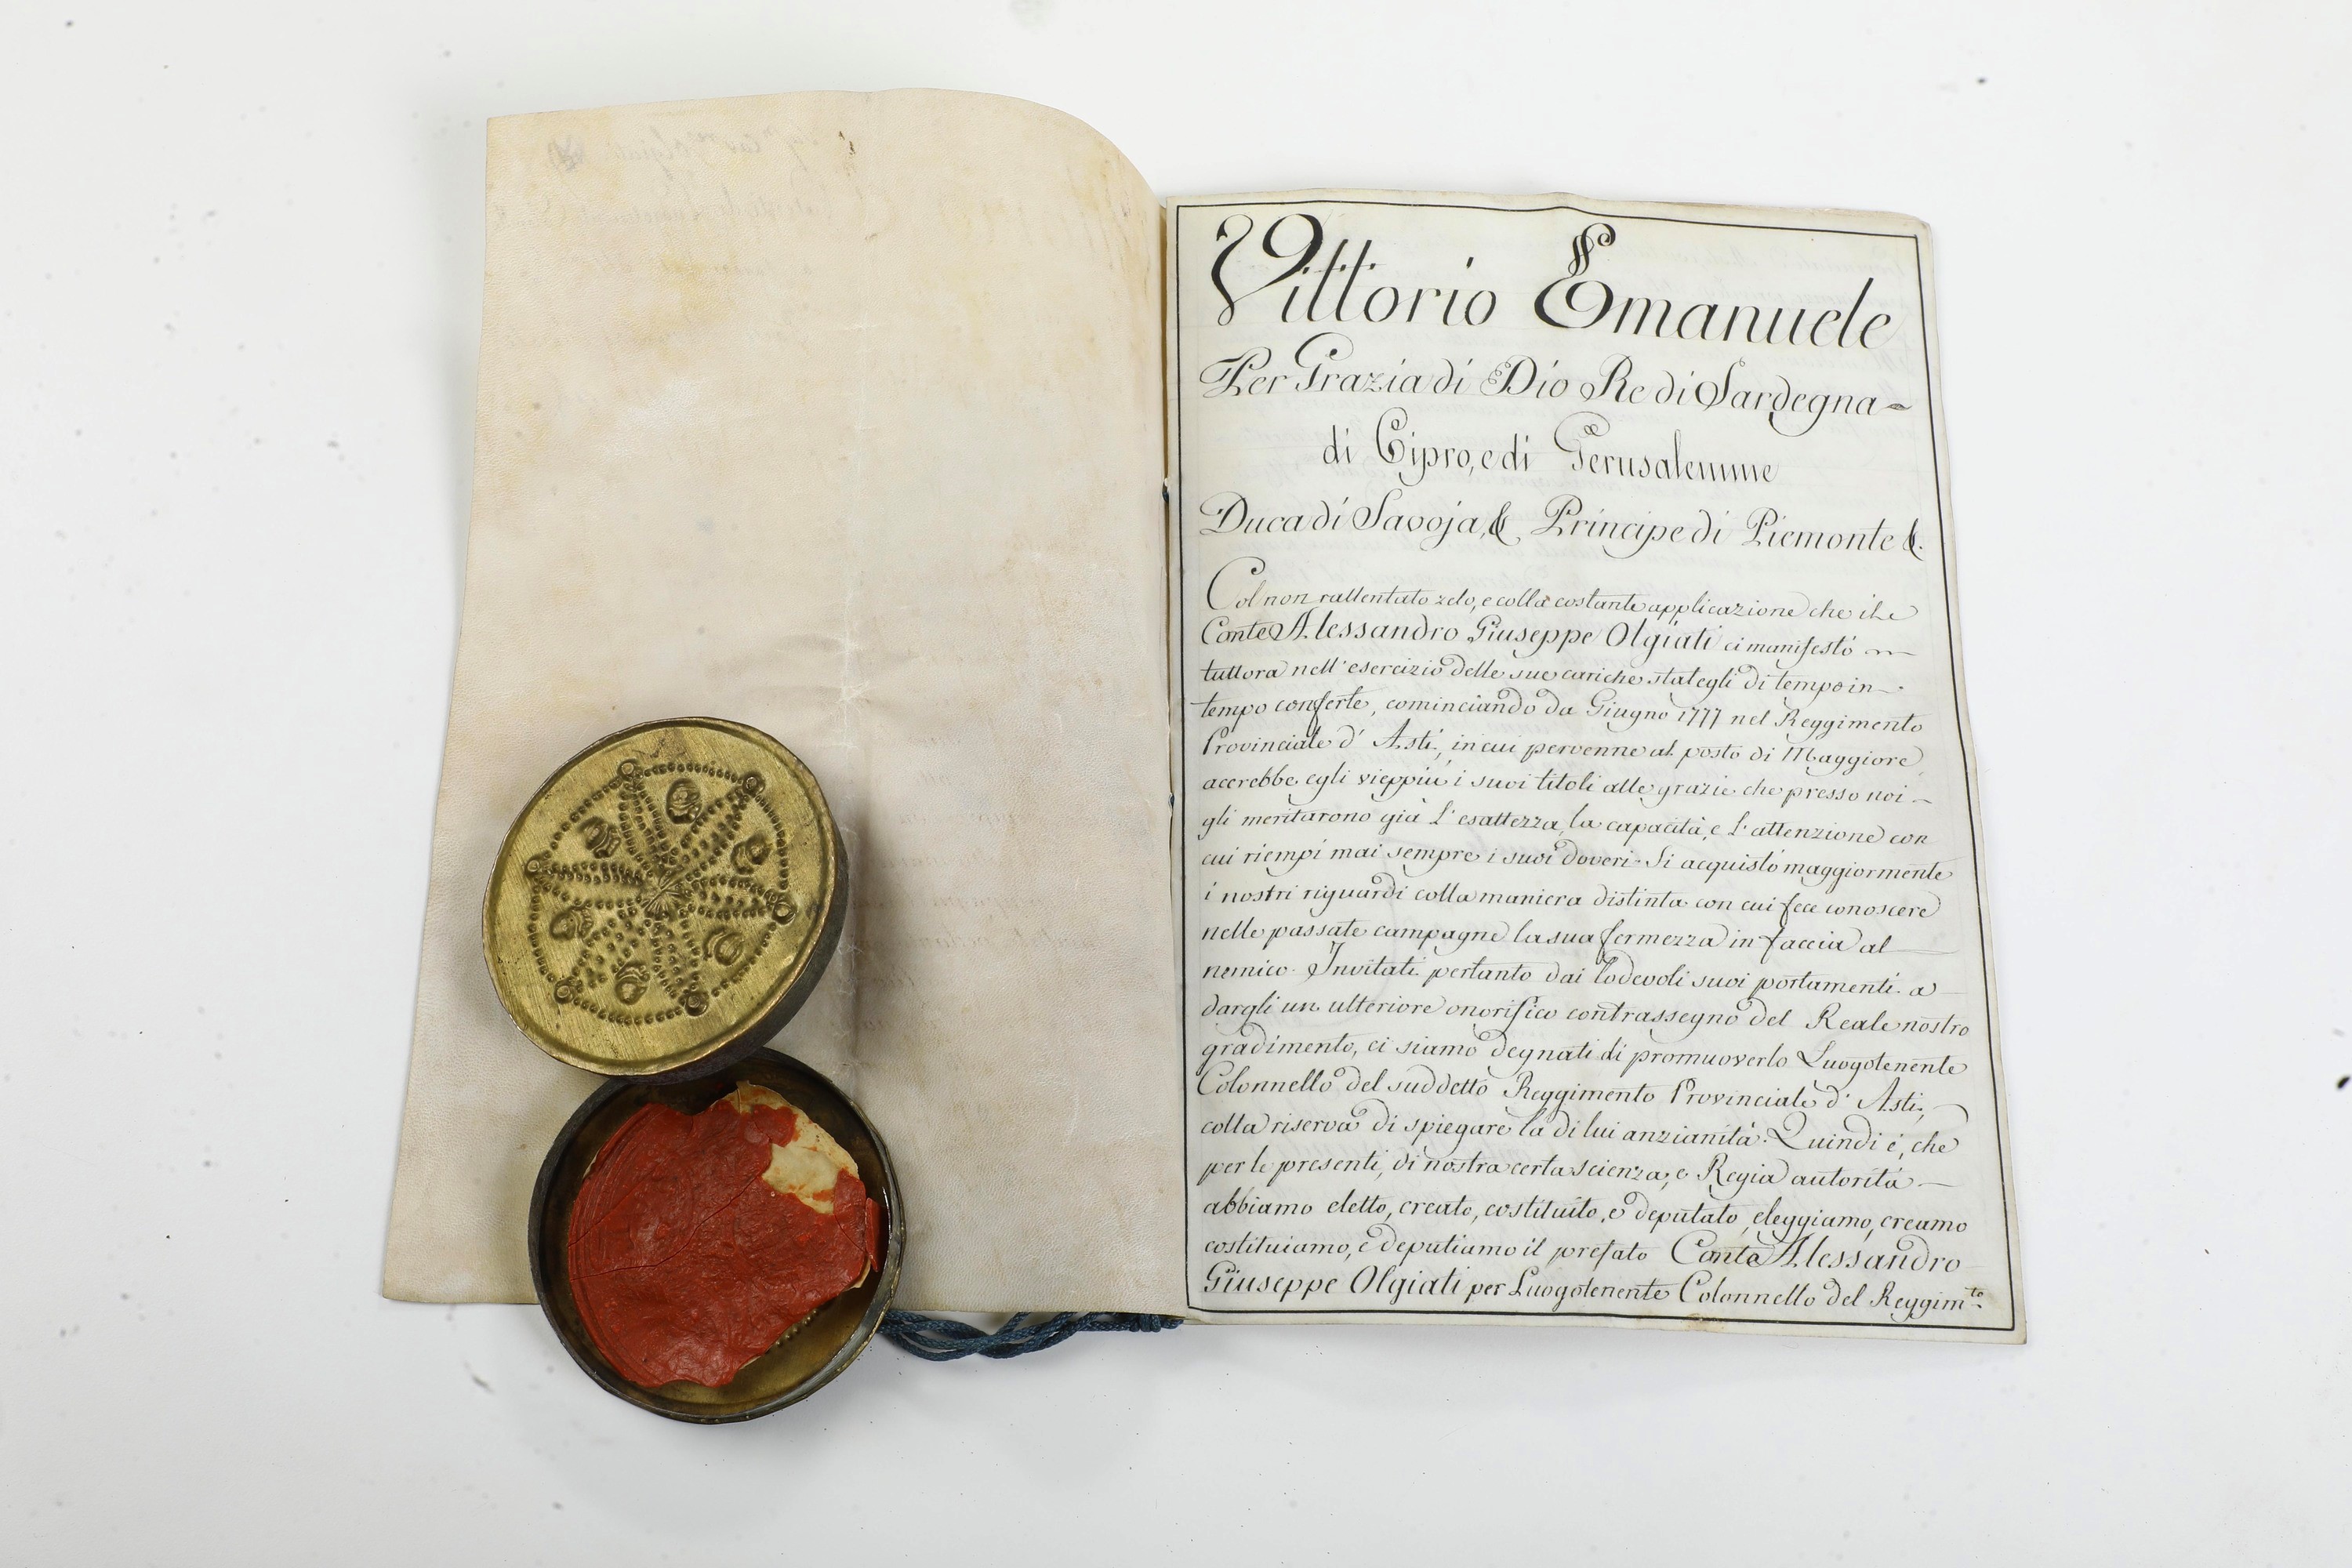 Vittorio Emanuele
Per Grazia di Dio Re di Sardegna
di Cipro, e di Gerusalemme
Duca di Savoja, &. Principe di Piemonte &.
Col non rallentato zelo, e colla costante applicazione che il
Conte Alessandro Giuseppe Olgiati ci manifestò
tuttora nell'esercizio delle sue cariche stategli di tempo in
tempo conferte, cominciando da Giugno 1777 nel Reggimento
Provinciale d'Asti, in cui pervenne al posto di Maggiore,
acerebbe egli vieppiù i suoi titoli alle grazie che presso noi
gli meritarono già l'esattezza, la capacità, e l'attenzione con
cui riempì mai sempre i suoi doveri. Si acquistò maggiormente
i nostri riguardi colla maniera distinta con cui fece conoscere
nelle passate campagne la sua fermezza in faccia al
nemico. Invitati pertanto dai lodevoli suoi portamenti a
dargli un ulteriore onorifico contrassegno del Reale nostro
gradimento, ci siamo degnati di promuoverlo Luogotenente
Colonnello del suddetto Reggimento Provinciale d'Asti,
colla riserva di spiegare la di lui anzianità. Quindi è, che
per le presenti, di nostra certa scienza, e Regia autorità
abbiamo eletto, creato, costituito, e deputato, eleggiamo, creamo
costituiamo, e deputiamo il prefato Conte Alessandro
Giuseppe Olgiati per Luogotenente Colonnello del Reggim.to